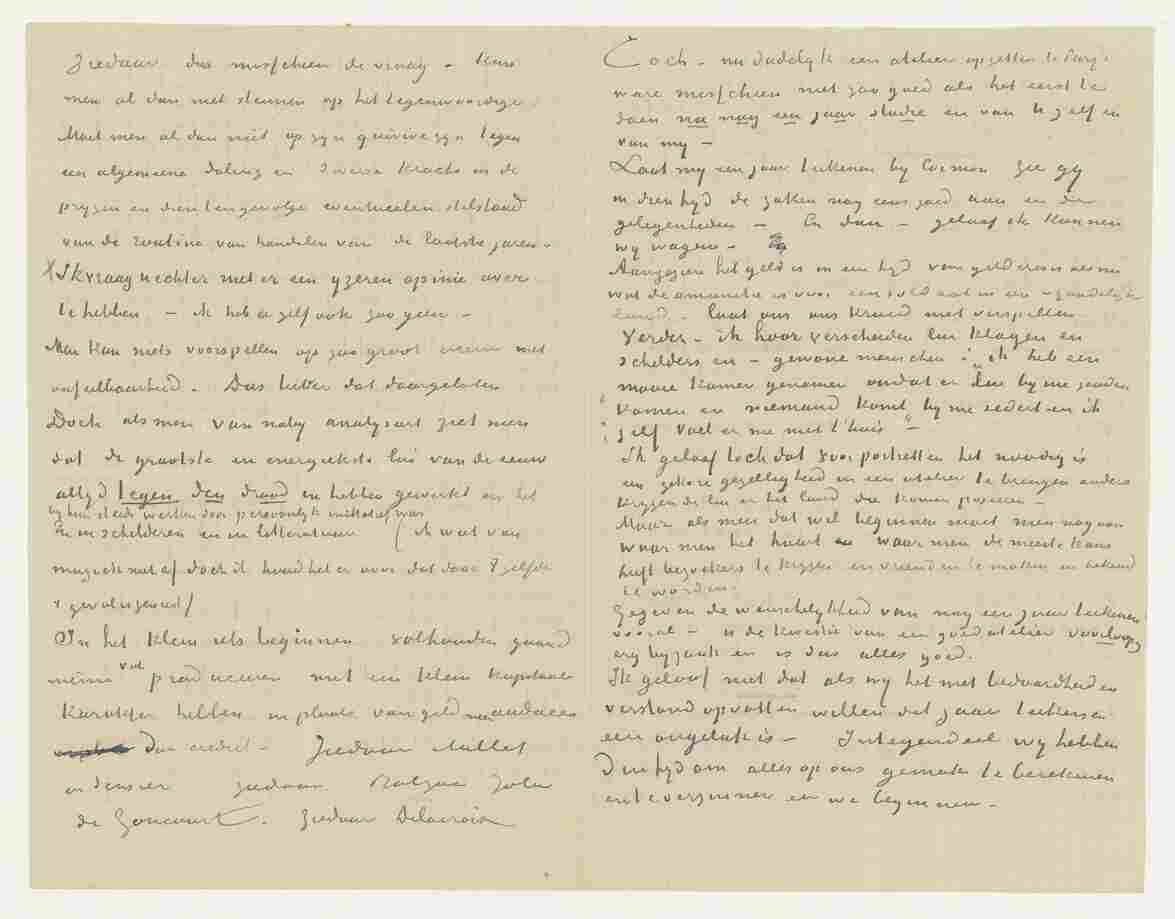 Ziedaar dus misschien de vraag – kan
men al dan niet steunen op het tegenwoordige
Moet men al dan niet op zyn quivive zyn tegen
een algemeene daling en diverse krachs in de
pryzen en dientengevolge eventueelen stilstand
van de routine van handelen van de laatste jaren –
Ik vraag U echter niet er een yzeren opinie over
te hebben – ik heb er zelf ook zoo geen –
Men kan niets voorspellen op zoo groot met
onfeilbaarheid. Dus liever dat daargelaten
Doch als men van naby analyseert ziet men
dat de grootste en energiekste lui van de eeuw
altyd tegen den draad in hebben gewerkt en het
by hun steeds werken door persoonlyk initiatief was
En in schilderen en in litteratuur (ik weet van
muziek niet af doch ik houd het er voor dat daar 't zelfde
't geval is geweest)
In het klein iets beginnen volhouden quand
même veel produceeren met een klein kapitaal
Karakter hebben in plaats van geld meer audacen
dan crediet – Ziedaar Millet
en Sensier ziedaar Balzac Zola
de Goncourt. Ziedaar Delacroix
Toch – nu dadelyk een atelier opzetten te Parys
ware misschien niet zoo goed als het eerst te
doen na nog een jaar studie en van U zelf en
van my –
Laat my een jaar teekenen by Cormon zie gy
in dien tyd de zaken nog eens goed aan en de
gelegenheden – En dan – geloof ik kunnen
wy wagen –
Aangezien het geld is in een tyd van geldcrisis als nu
wat de amunitie is voor een soldaat in een vyandelyk
land – laat ons ons kruid niet verspillen
Verder – ik hoor verscheiden lui klagen en
schilders en – gewone menschen : „ik heb een
mooie kamer genomen omdat er lui by me zouden
komen en niemand komt by me sedert en ik
zelf voel er me niet t'huis" –
Ik geloof toch dat voor portretten het noodig is
een zekere gezelligheid in een atelier te brengen anders
krygen de lui er het land die komen poseeren –
Maar als men dat wil beginnen moet men nagaan
waar men het huurt en waar men de meeste kans
heeft bezoekers te krygen en vrienden te maken en bekend
te worden.
Gegeven de wenschelykheid van nog een jaar teekenen
vooral – is de kwestie van een goed atelier voorloopig
erg byzaak en is dus alles goed.
Ik geloof niet dat als wy het met bedaardheid en
verstand opvatten willen dat jaar teekenen
een ongeluk is – Integendeel wy hebben
dan tyd om alles op ons gemak te berekenen
en te verzinnen eer we beginnen –